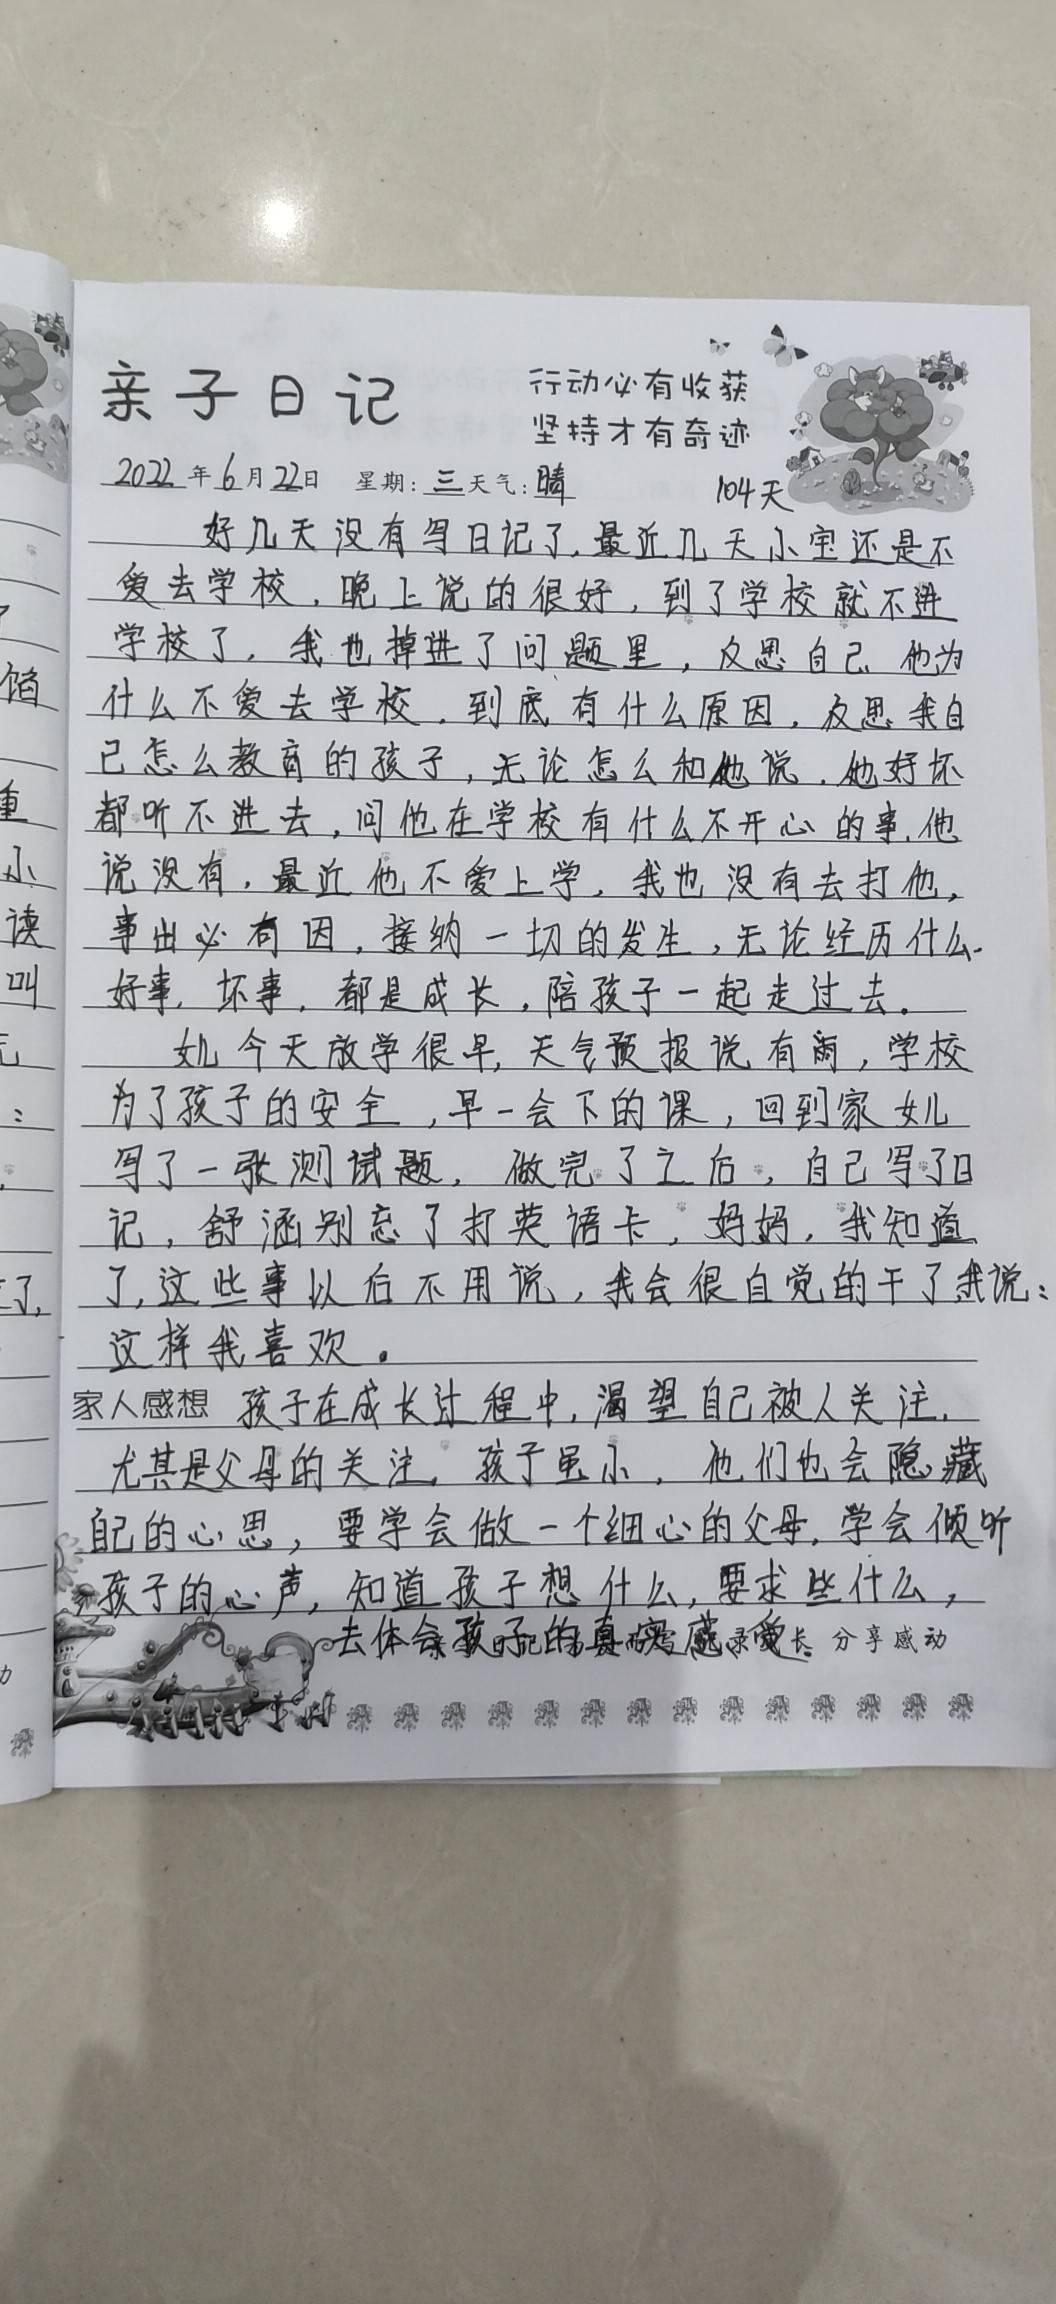 亲子日记
行动必有收获
坚持才有奇迹
2022年6月22日 星期:三天气:晴 104天
好几天没有写日记了,最近几天小宝还是不
爱去学校,晚上说的很好,到了学校就不进
学校了,我也掉进了问题里,反思自己 他为
什么不爱去学校,到底有什么原因,反思我自
己怎么教育的孩子,无论怎么和他说,他好坏
都听不进去,问他在学校有什么不开心的事,他
说没有,最近他不爱上学,我也没有去打他,
事出必有因,接纳一切的发生,无论经历什么.
好事,坏事,都是成长,陪孩子一起走过去。
女儿今天放学很早,天气预报说有雨,学校
为了孩子的安全,早一会下的课,回到家女儿
写了一张测试题,做完了之后,自己写了日
记,舒涵别忘了打英语卡,妈妈,我知道
了,这些事以后不用说,我会很自觉的干了我说:
这样我喜欢。
家人感想 孩子在成长过程中,渴望自己被人关注,
尤其是父母的关注,孩子虽小,他们也会隐藏
自己的心思,要学会做一个细心的父母,学会倾听
孩子的心声,知道孩子想什么,要求些什么,
去体会孩子的真实感受.
长 分享感动
馅
重
小
读
叫
:
了,